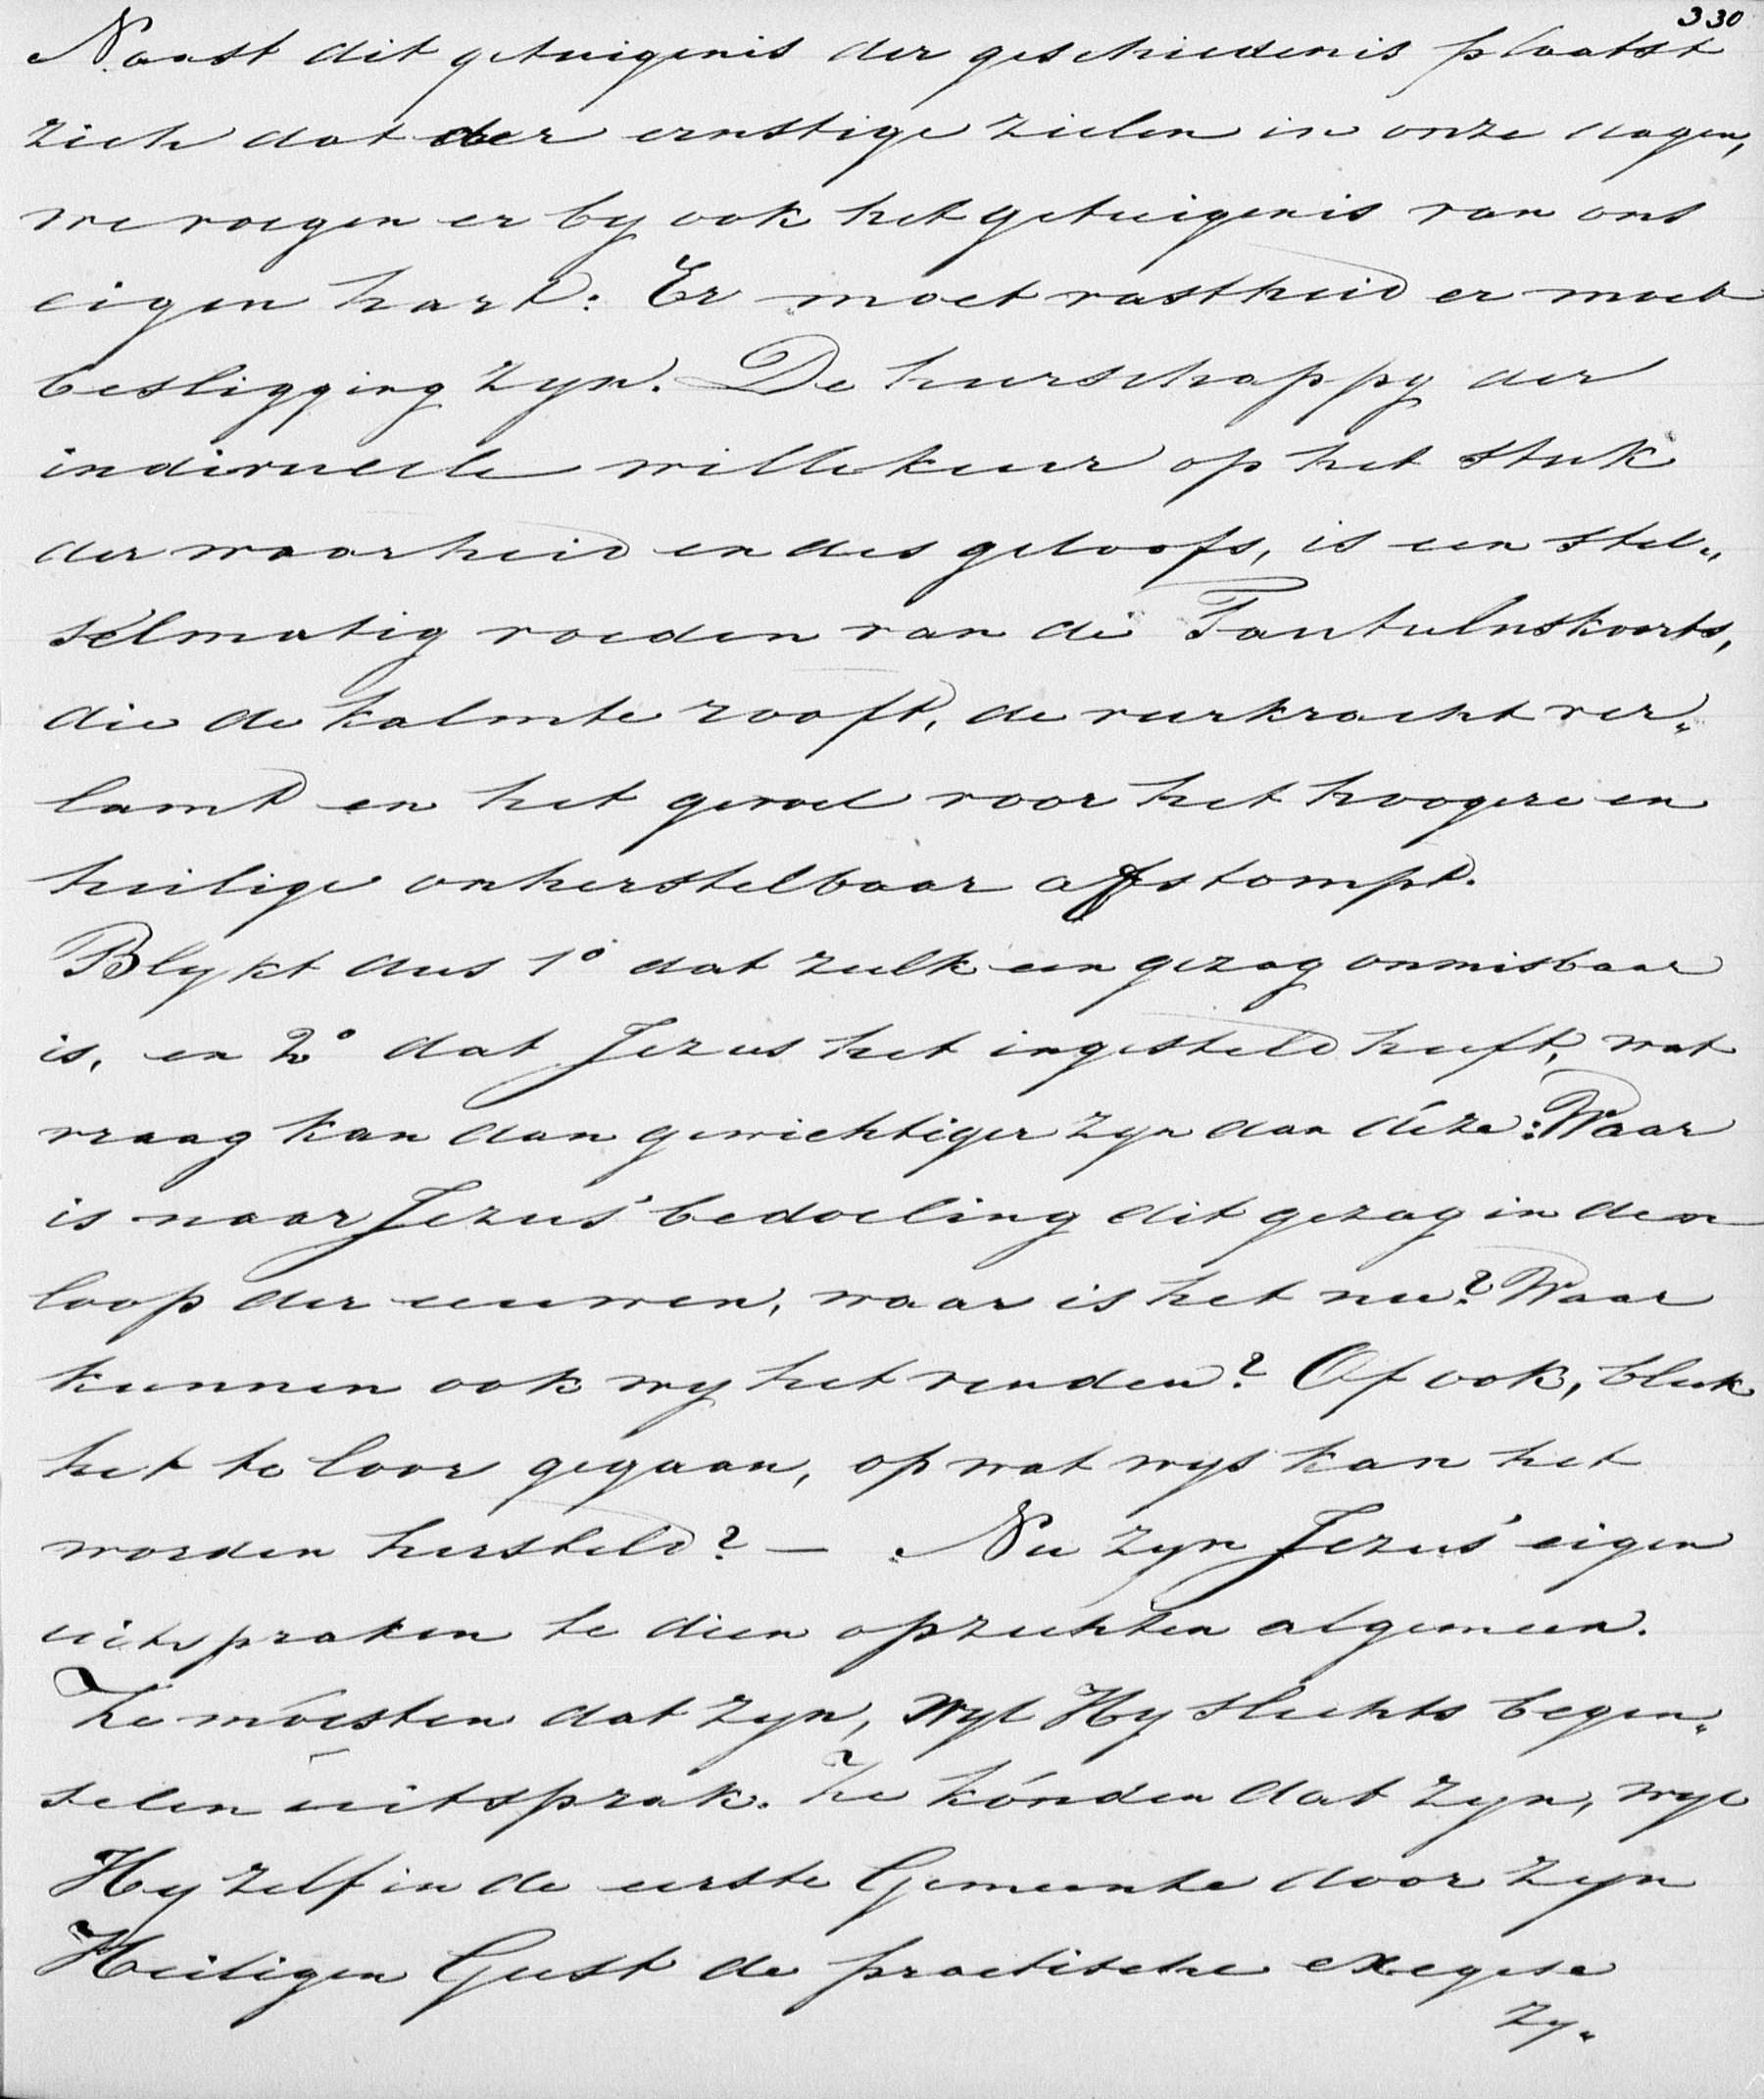 330
Naast dit getuigenis der geschiedenis plaatst
zich dat der ernstige zielen in onze dagen,
we voegen er by ook het getuigenis van ons
eigen hart: Er moet vastheid er moet
beslissing zyn. De heerschappy der
individueele willekeur op het stuk
der waarheid en des geloofs, is een stel„
selmatig voeden van de Tantaluskoorts,
die de kalmte rooft, de veerkracht ver„
lamt en het gevoel voor het hoogere en
heilige onherstelbaar afstompt.
Blykt dus 1° dat zulk een gezag onmisbaar
is, en 2° dat Jezus het ingesteld heeft, wat
vraag kan dan gewichtiger zyn dan déze: Waar
is naar Jezus' bedoeling dit gezag in den
loop der eeuwen, waar is het nu? Waar
kunnen ook wy het vinden? Of ook, bleek
het te loor gegaan, op wat wys kan het
worden hersteld? — Nu zyn Jezus' eigen
uitspraken te dien opzichten algemeen.
Ze móesten dat zyn, wyl Hy slechts begin„
selen uitsprak. Ze kónden dat zyn, wyl
Hy zelf in de eerste Gemeente door zyn
Heiligen Geest de practische exegese
zy„